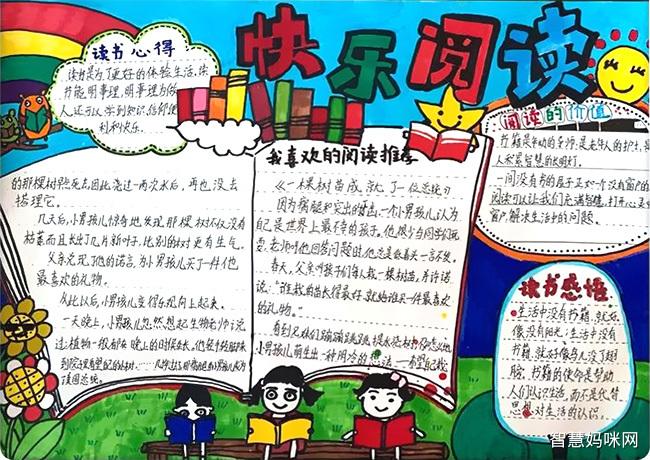 快乐阅读
读书心得
读书是为了更好的体验生活，读
书能明事理，明事理为做
人，还可以学到知识，给你便
利和快乐。
阅读的价值
书籍是年幼的导师，是老年人的护士，是
人积累智慧的长明灯。
一间没有书的屋子正如一个没有窗户的
阅读可以让我们充满智慧，打开心灵
窗户，解决生活中的问题。
我喜欢的阅读推荐
《一棵树苗成就了一位总统》
因为病腿和突出的牙齿，一个小男孩认为
自己是世界上最不幸的孩子。他很少与同学们玩
耍，老师叫他回答问题时，他总是低着头一言不发。
春天，父亲叫孩子们每人栽一棵树苗，并许诺
说："谁栽的苗长得最好，就给谁买一件最喜欢
的礼物。"
看到兄妹们蹦蹦跳跳提水浇树的
小男孩萌生出一种阴冷的想法——希望自己栽
的那棵树早点死去。因此浇过一两次水后，再也没去
搭理它。
几天后，小男孩惊奇地发现那棵树不仅没有
枯萎，而且长出了几片新叶子，比别的树更有生气。
父亲兑现了他的诺言，为小男孩买了一件他
最喜欢的礼物。
从此以后，小男孩变得乐观向上起来。
一天晚上，小男孩忽然想起生物老师说
过：植物一般都在晚上的时候生长，他轻手轻脚来
到院子里
美国总统。
读书感悟
生活中没有书籍，就好
像没有阳光；生活中没有
书籍，就好像鸟儿没了翅
膀。书籍的使命是帮助
人们认识生活，而不是代替
思想对生活的认识。
智慧妈咪网